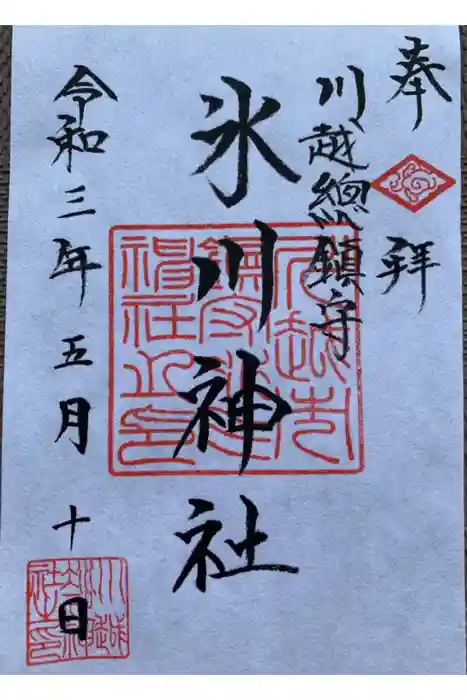 奉拝
川越總鎮守
氷川神社
令和三年五月十日